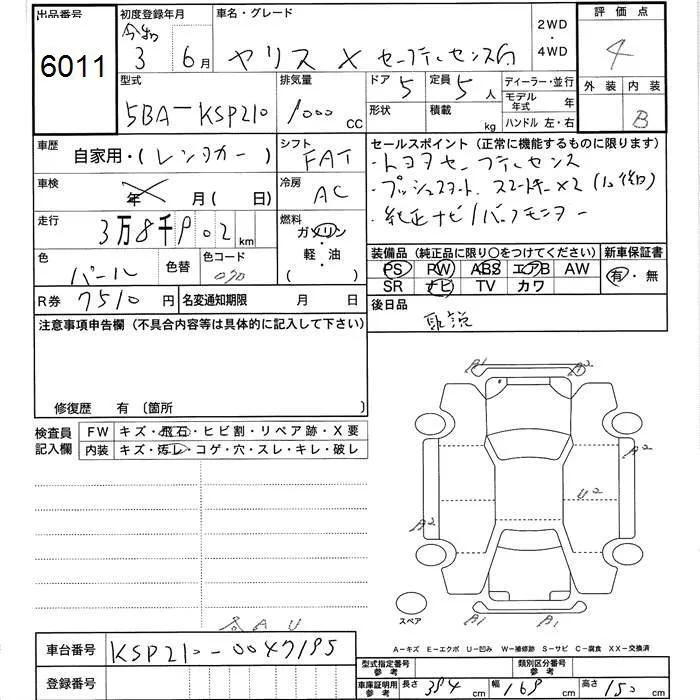 出品番号 初度登録年月 車名・グレード 2WD ・ 4WD 評価点
6011 令和 3 6月 ヤリス X セーフティセンス付 4
型式 排気量 ドア 5 定員 5 人 ディーラー・並行 外装 内装
5BA-KSP210 1000 cc 形状 積載 kg モデル年式 年 B
ハンドル 左・右
車歴 自家用・(レンタカー) シフト FAT セールスポイント (正常に機能するものに限ります)
・トヨタセーフティセンス
車検 年 月 ( 日) 冷房 AC ・プッシュスタート. スマートキー×2
走行 3万8千902 km 燃料 ガソリン ・純正ナビ/バックモニター
色 パール 色替 色コード 070 軽・油 ( ) 装備品 (純正品に限り○をつけてください) 新車保証書
PS PW ABS エアB AW 有・無
R券 7510円 名変通知期限 月 日 SR ナビ TV カワ
注意事項申告欄 (不具合内容等は具体的に記入して下さい) 後日品
取説
修復歴 有 〔箇所 〕
検査員記入欄 FW キズ・飛石・ヒビ割・リペア跡・X要
内装 キズ・汚レ・コゲ・穴・スレ・キレ・破レ
A1 A2
A2
U2
A2
スペア B1 A1
A A U
A-キズ E-エクボ U-凹み W-補修跡 S-サビ C-腐食 XX-交換済
車台番号 KSP210-0047195
型式指定番号 参考 類別区分番号 参考
登録番号 車庫証明用 参考 長さ 394 cm 幅 169 cm 高さ 150 cm